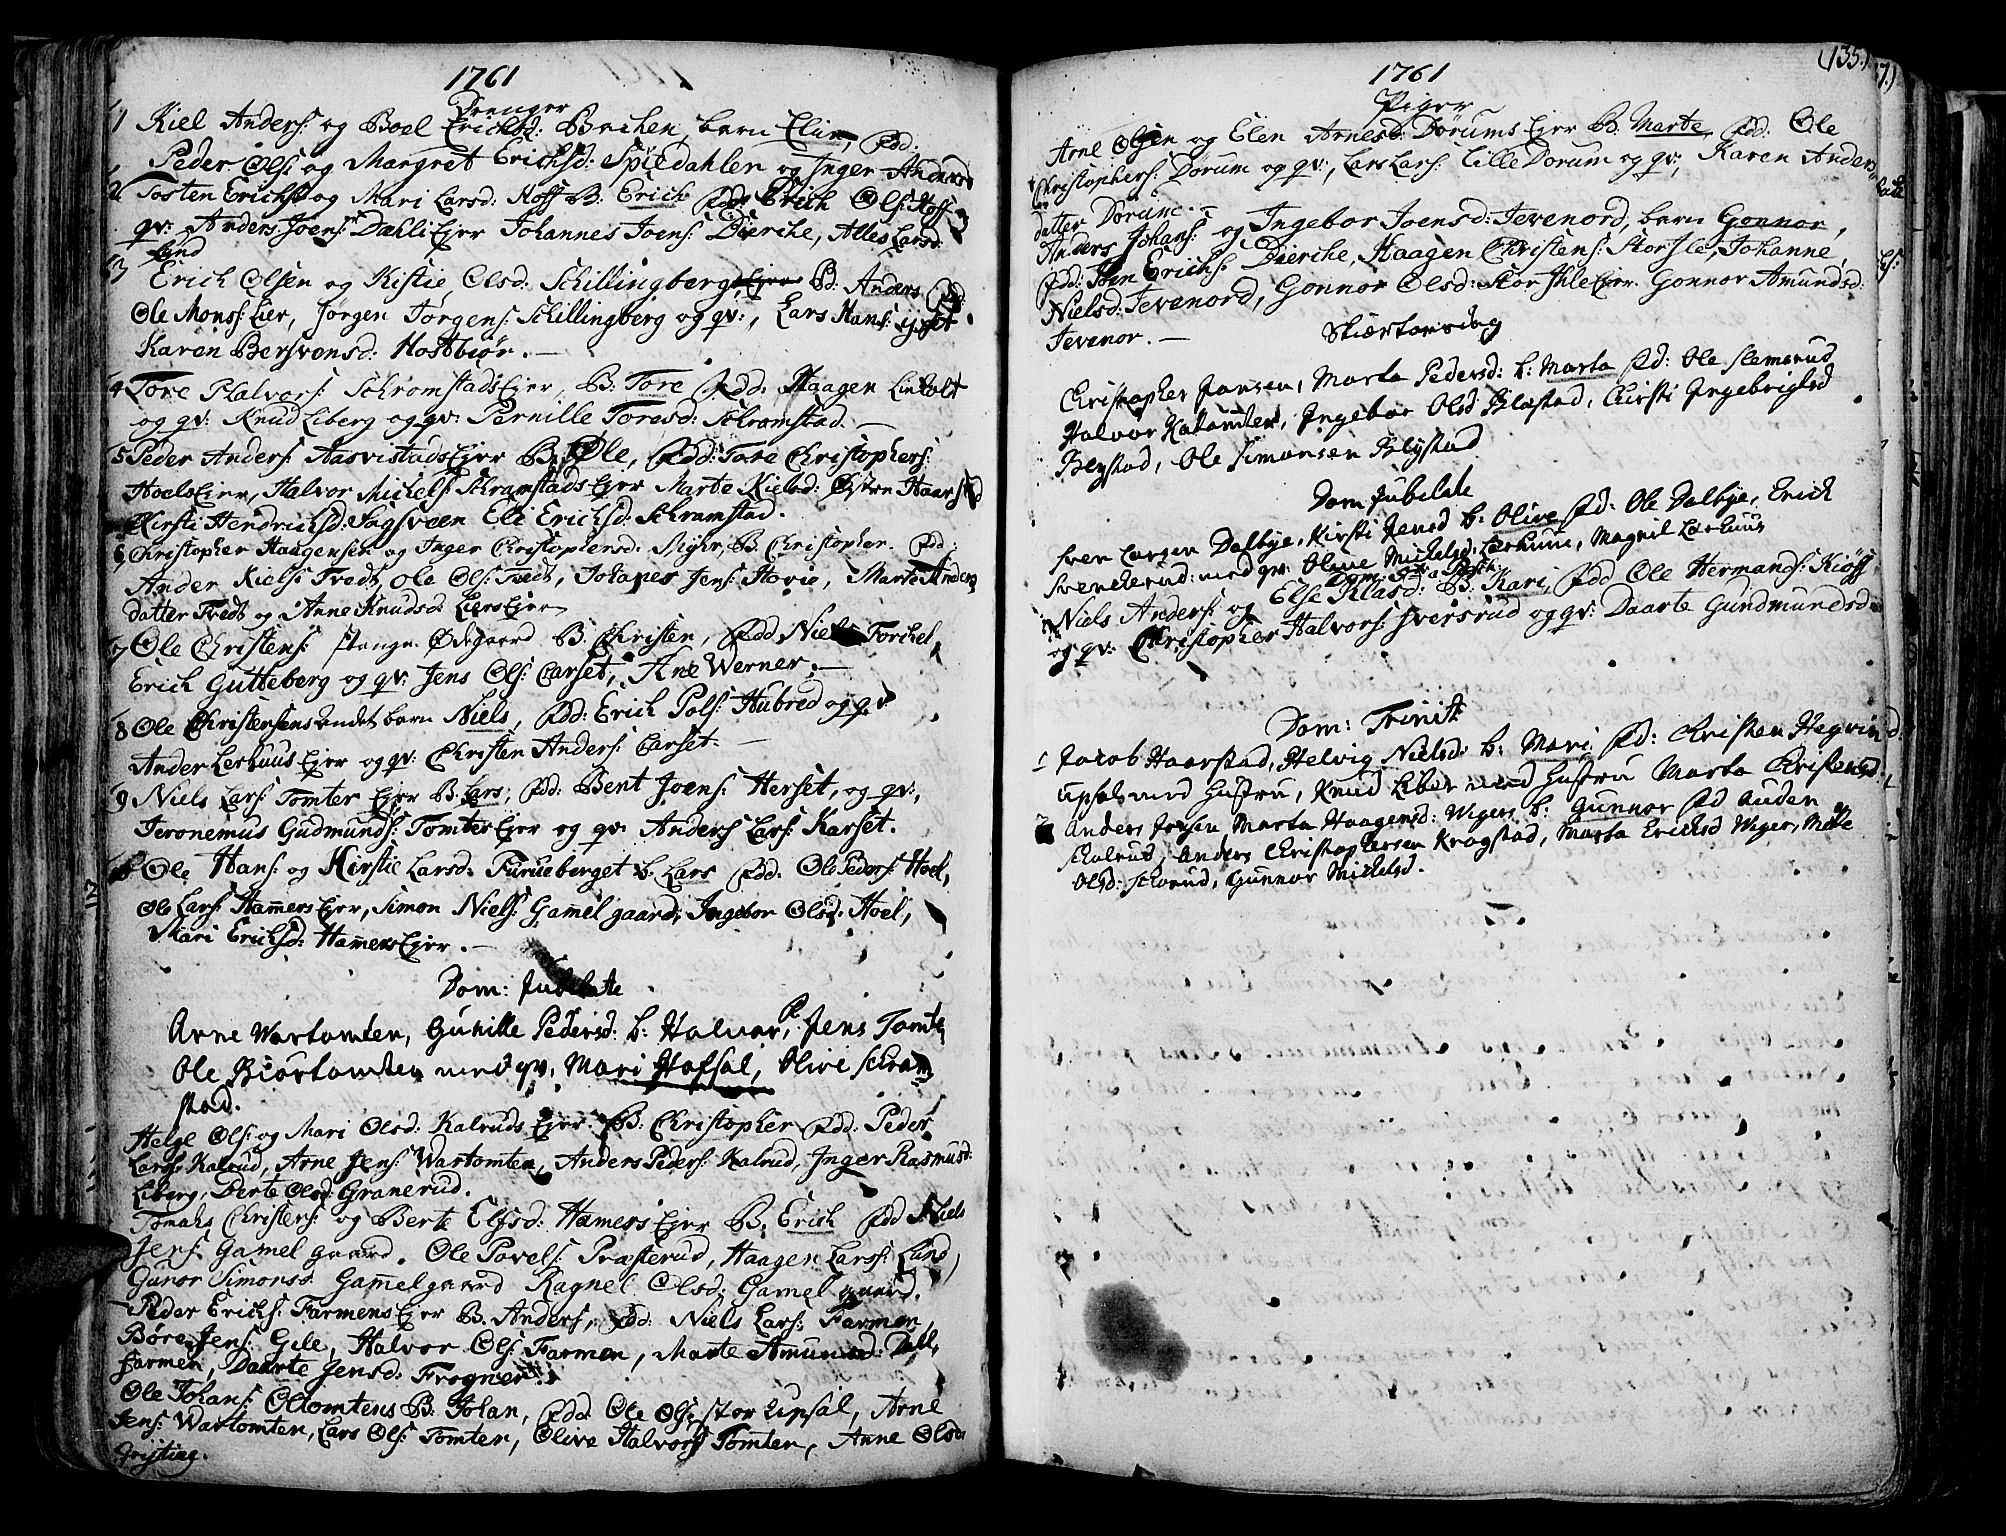 1761
Drenger
1 Kiel Anders: og Boel Erichsd: Brehen, barn Elin, Fdd:
Peder Ols: og Margret Erichsd: Spildahlen og Inger Andersd
2 Tosten Erichs: og Mari Larsd: Hoff B: Erich Fdd: Erich Ols: Hoff
qv: Anders Joens: Dæhli Ejer Johannes Joens: Dierche, Alles Larsd:
Lund
3 Erich Olsen og Kistie Olsd: Schillingberg, B: Anders Fdd:
Ole Mons: Lier, Jørgen Jørgens: Schillingberg og qv:, Lars Hans:
Karen Bersvensd: Hostbiør. —
4 Tore Halvors: Schromstads Ejer, B: Tore Fdd: Haagen Linholt
og qv: Knud Liberg og qv: Pernille Toresd: Schramstad. —
5 Peder Anders: Aasvistads Ejer B: Ole, Fdd: Tore Christophers:
Hoels Ejer, Halvor Michels: Schramstads Ejer Marte Kielsd: Østre Haarstad
Kirsti Hendrichsd: Sagsveen Eli Erichsd: Schramstad.
6 Christopher Haagensen og Inger Christophersd: Myhr, B: Christopher. Fdd:
Ander Kiels: Tvedt, Ole Ols: Tvedt, Johanes Jens: Hovie, Marte Anders
datter Tvedt og Anne Knudsd: Liers Ejer
7 Ole Christens: Stange Ødegaard B. Christen, Fdd Niels Torchel,
Erich Gutteberg og qv: Jens Ols: Carset, Ane Werner. —
8 Ole Christensens andet barn Niels, Fdd: Erich Pols: Hubred og qv
Ander Lerhuus Ejer og qv: Christen Anders: Carset. —
9 Niels Lars: Tomter Ejer B: Lars, Fdd: Bent Joens: Herset, og qv:,
Jeronemus Gudmunds: Tomter Ejer og qv: Anders Lars: Karset.
10 Ole Hans: og Kirstie Larsd: Furueberget b. Lars Fdd: Ole Peders: Hoel,
Ole Lars: Hamers Ejer, Simon Niels: Gamel gaard, Ingebor Olsd: Hoel,
Mari Erichsd: Hamers Ejer. —
Dom: Jubilate
Arne Wartomten, Gunille Pedersd: b: Halvor, F. Jens Tomte
Ole Biørtomten med qv: Mari Hofsal, Olive Schram
stad.
Helge Ols: og Mari Olsd: Kalruds Ejer. B: Christopher Fdd: Peder
Lars: Kalrud, Arne Jens: Wartomten, Anders Peders: Kalrud, Inger Rasmusd:
Liberg, Berte Olsd: Granerud.
Tomahs Christens: og Berte Elfsd: Hamers Ejer B: Erich Fdd Niels
Jens: Gamel gaard. Ole Povels: Præsterud, Haagen Lars: Lund,
Guror Simonsd: Gamelgaard Ragnel Olsd: Gamel gaard.
Peder Erichs: Farmens Ejer B. Anders, Fdd: Niels Lars: Farmen,
Børe Jens: Gile, Halvor Ols: Farmen, Marte Amundsd: Dall,
Farmen, Daarte Jensd: Frogner.
Ole Johans: Oltomtens B: Johan, Fdd: Ole Ols: Stor Upsal, Arne
Jens: Wartomten, Lars Ols: Tomten, Olive Halvors: Tomten, Anne Olsd:
Frijstieg.
(135.)
1761
Piger
Arne Olsen og Elen Arnesd: Dørums Ejer B. Marte, Fdd: Ole
Christophers: Dørum og qv:, Lars Lars: Lille Dorum og qv:, Karen Anders
datter Dorum. —
Anders Johans: og Ingebor Joensd: Tevenord, barn Gonnor,
Fdd: Iben Erichs: Dierche, Haagen Christens: Storsle, Johanne,
Nielsd: Tevenord, Gonnor Olsd: Stor Ihle Ejer. Gonnor Amundsd:
Tevenor. —
Skiærtorsdag
Christopher Jansen, Marta Pedersd: b: Marta Fd: Ole Slemsrud
Halvor Kalomten, Ingebor Olsd Blystad, Chirsti Ingebriglsd
Blystad, Ole Simonsen Blystad
Dom Jubelate
Sven Largen Dalbye, Kirsti Jensd b: Olive Fd: Ole Dalbye, Erich
Svenckerud med qv: Oluve Michelsd: Lærhuus, Magnil Lærhuus
Niels Anders: og Else Klasd: B: Kari, Fdd Ole Hermands: Kiøs
og qv: Christopher Halvors: Sversrud og qv: Daarte Gundmundsd:
Dom: Trinit:
1 Jacob Haarstad, Helvig Nielsd: b: Mari Fd: Christen Hegvin
Upsal med Hustru, Knud Liber med Hustru Marta Christensd:
2 Anders Jensen Marta Haagensd: Wiger b: Gunnor Fd Auden
Scholrud, Anders Christophersen Kragstad, Marta Ericksd Wiger, Mete
Olsd: Schorud, Gunnor Mickelsd.